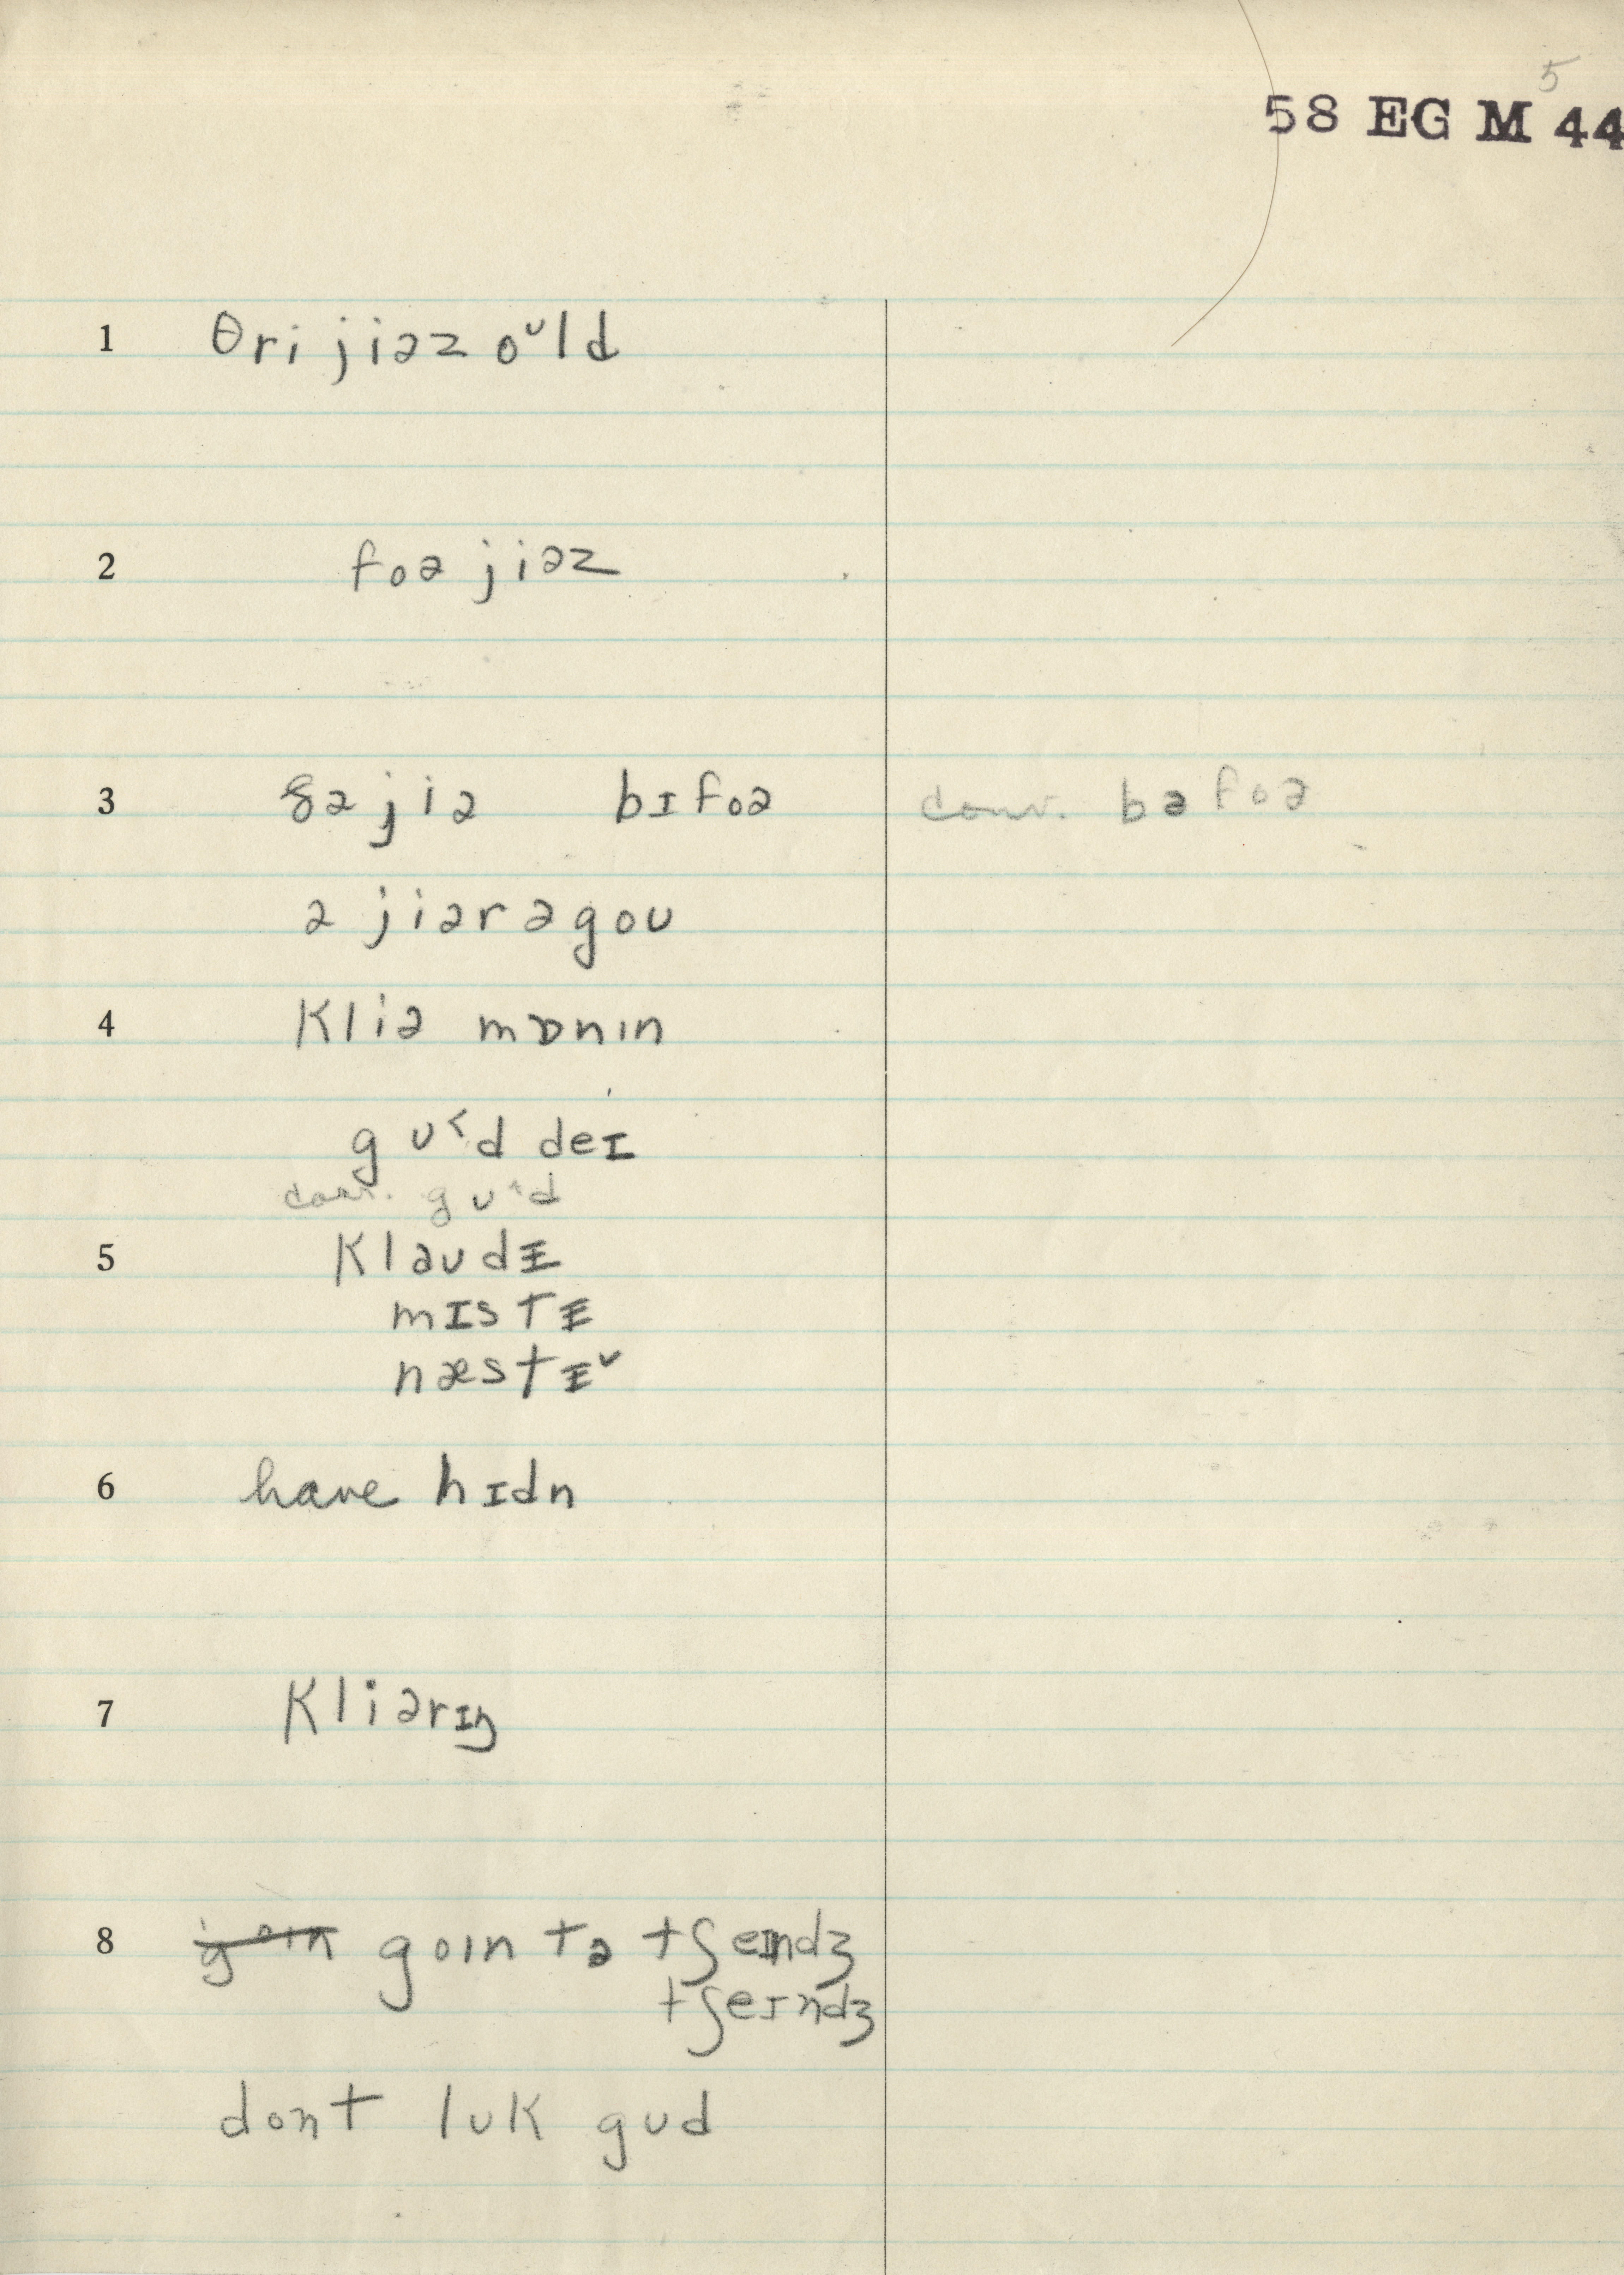 5
58 EG M 44
1 θri jiəz oᴜld
2 foə jiəz
3 ðə jiə bɪfoə conv. bəfoə
ə jiərəgoʊ
4 Kliə mɒnɪn
gʊ˂d deɪ
conv. gʊ^d
5 Klaʊdᵻ
mɪstᵻ
næstᵻ˅
6 have hɪdn
7 Kliərɪŋ
8 goɪn goɪn tə tʃeɪndʒ
tʃeɪndʒ
dont lʊk gʊd